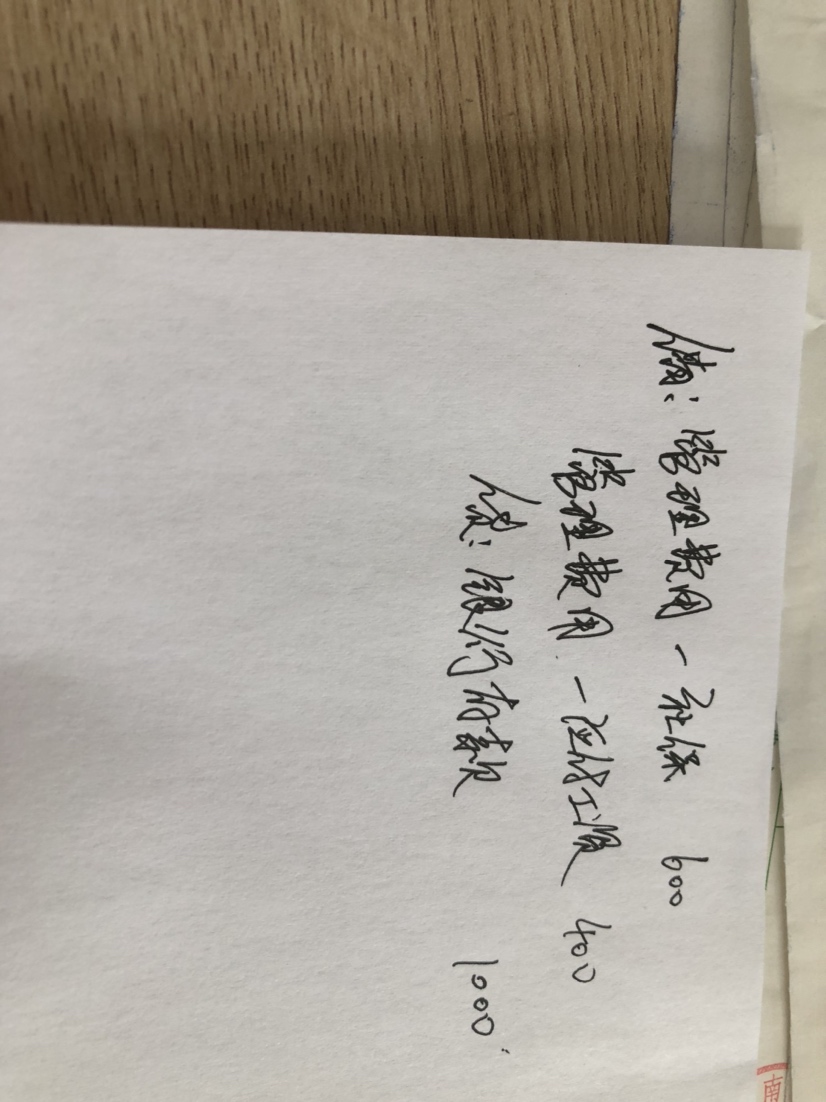 借：管理费用－社保 600
管理费用－应付工资 400
贷：银行存款 1000
南